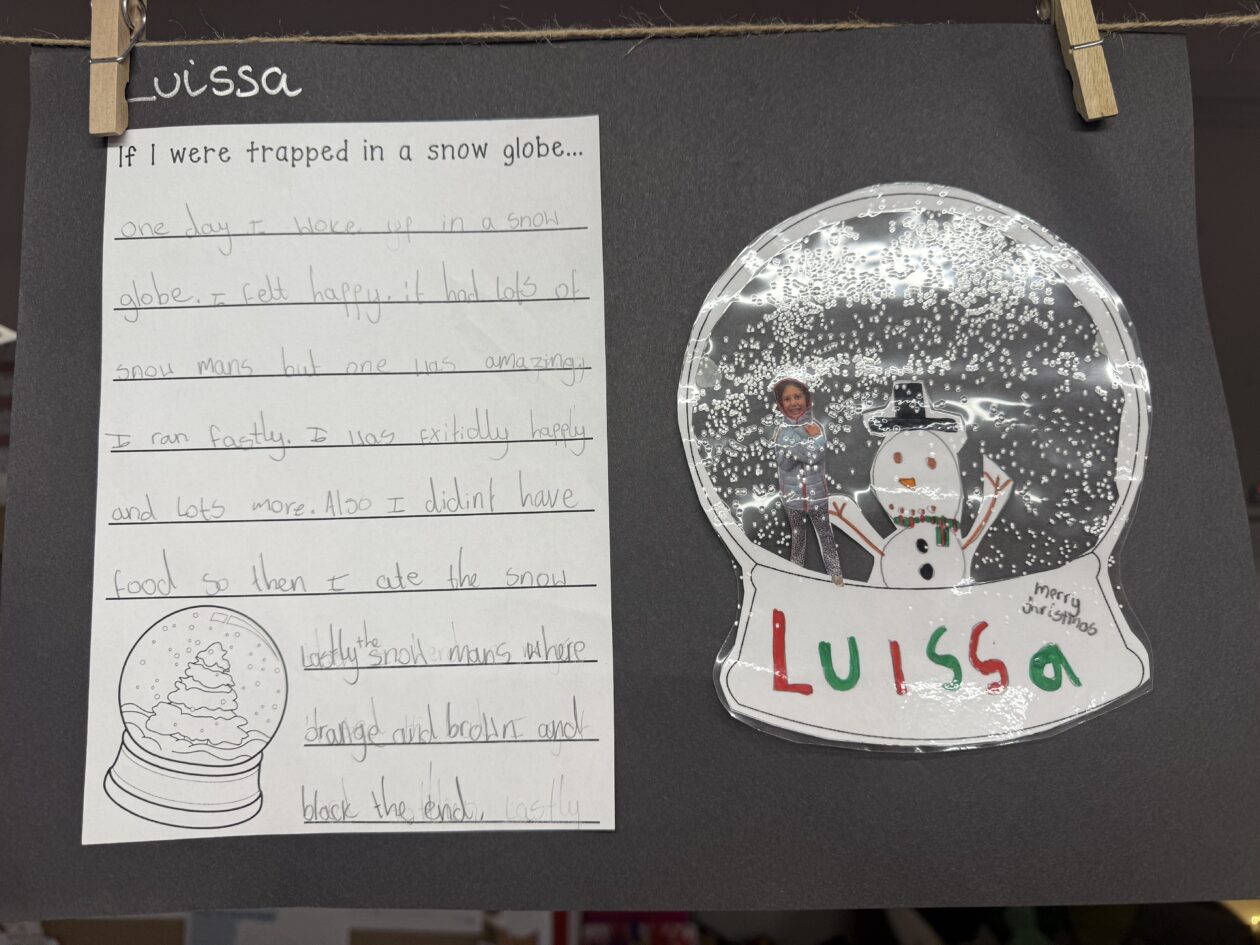 Luissa
If I were trapped in a snow globe...
one day I woke up in a snow
globe. I felt happy. it had lots of
snow mans but one was amazing,
I ran fastly. I was exitidly happly
and lots more. Also I didint have
food so then I ate the snow
Lastly the snow mans where
orange and brown and
black the end. Lastly
merry
christmas
LuISSa